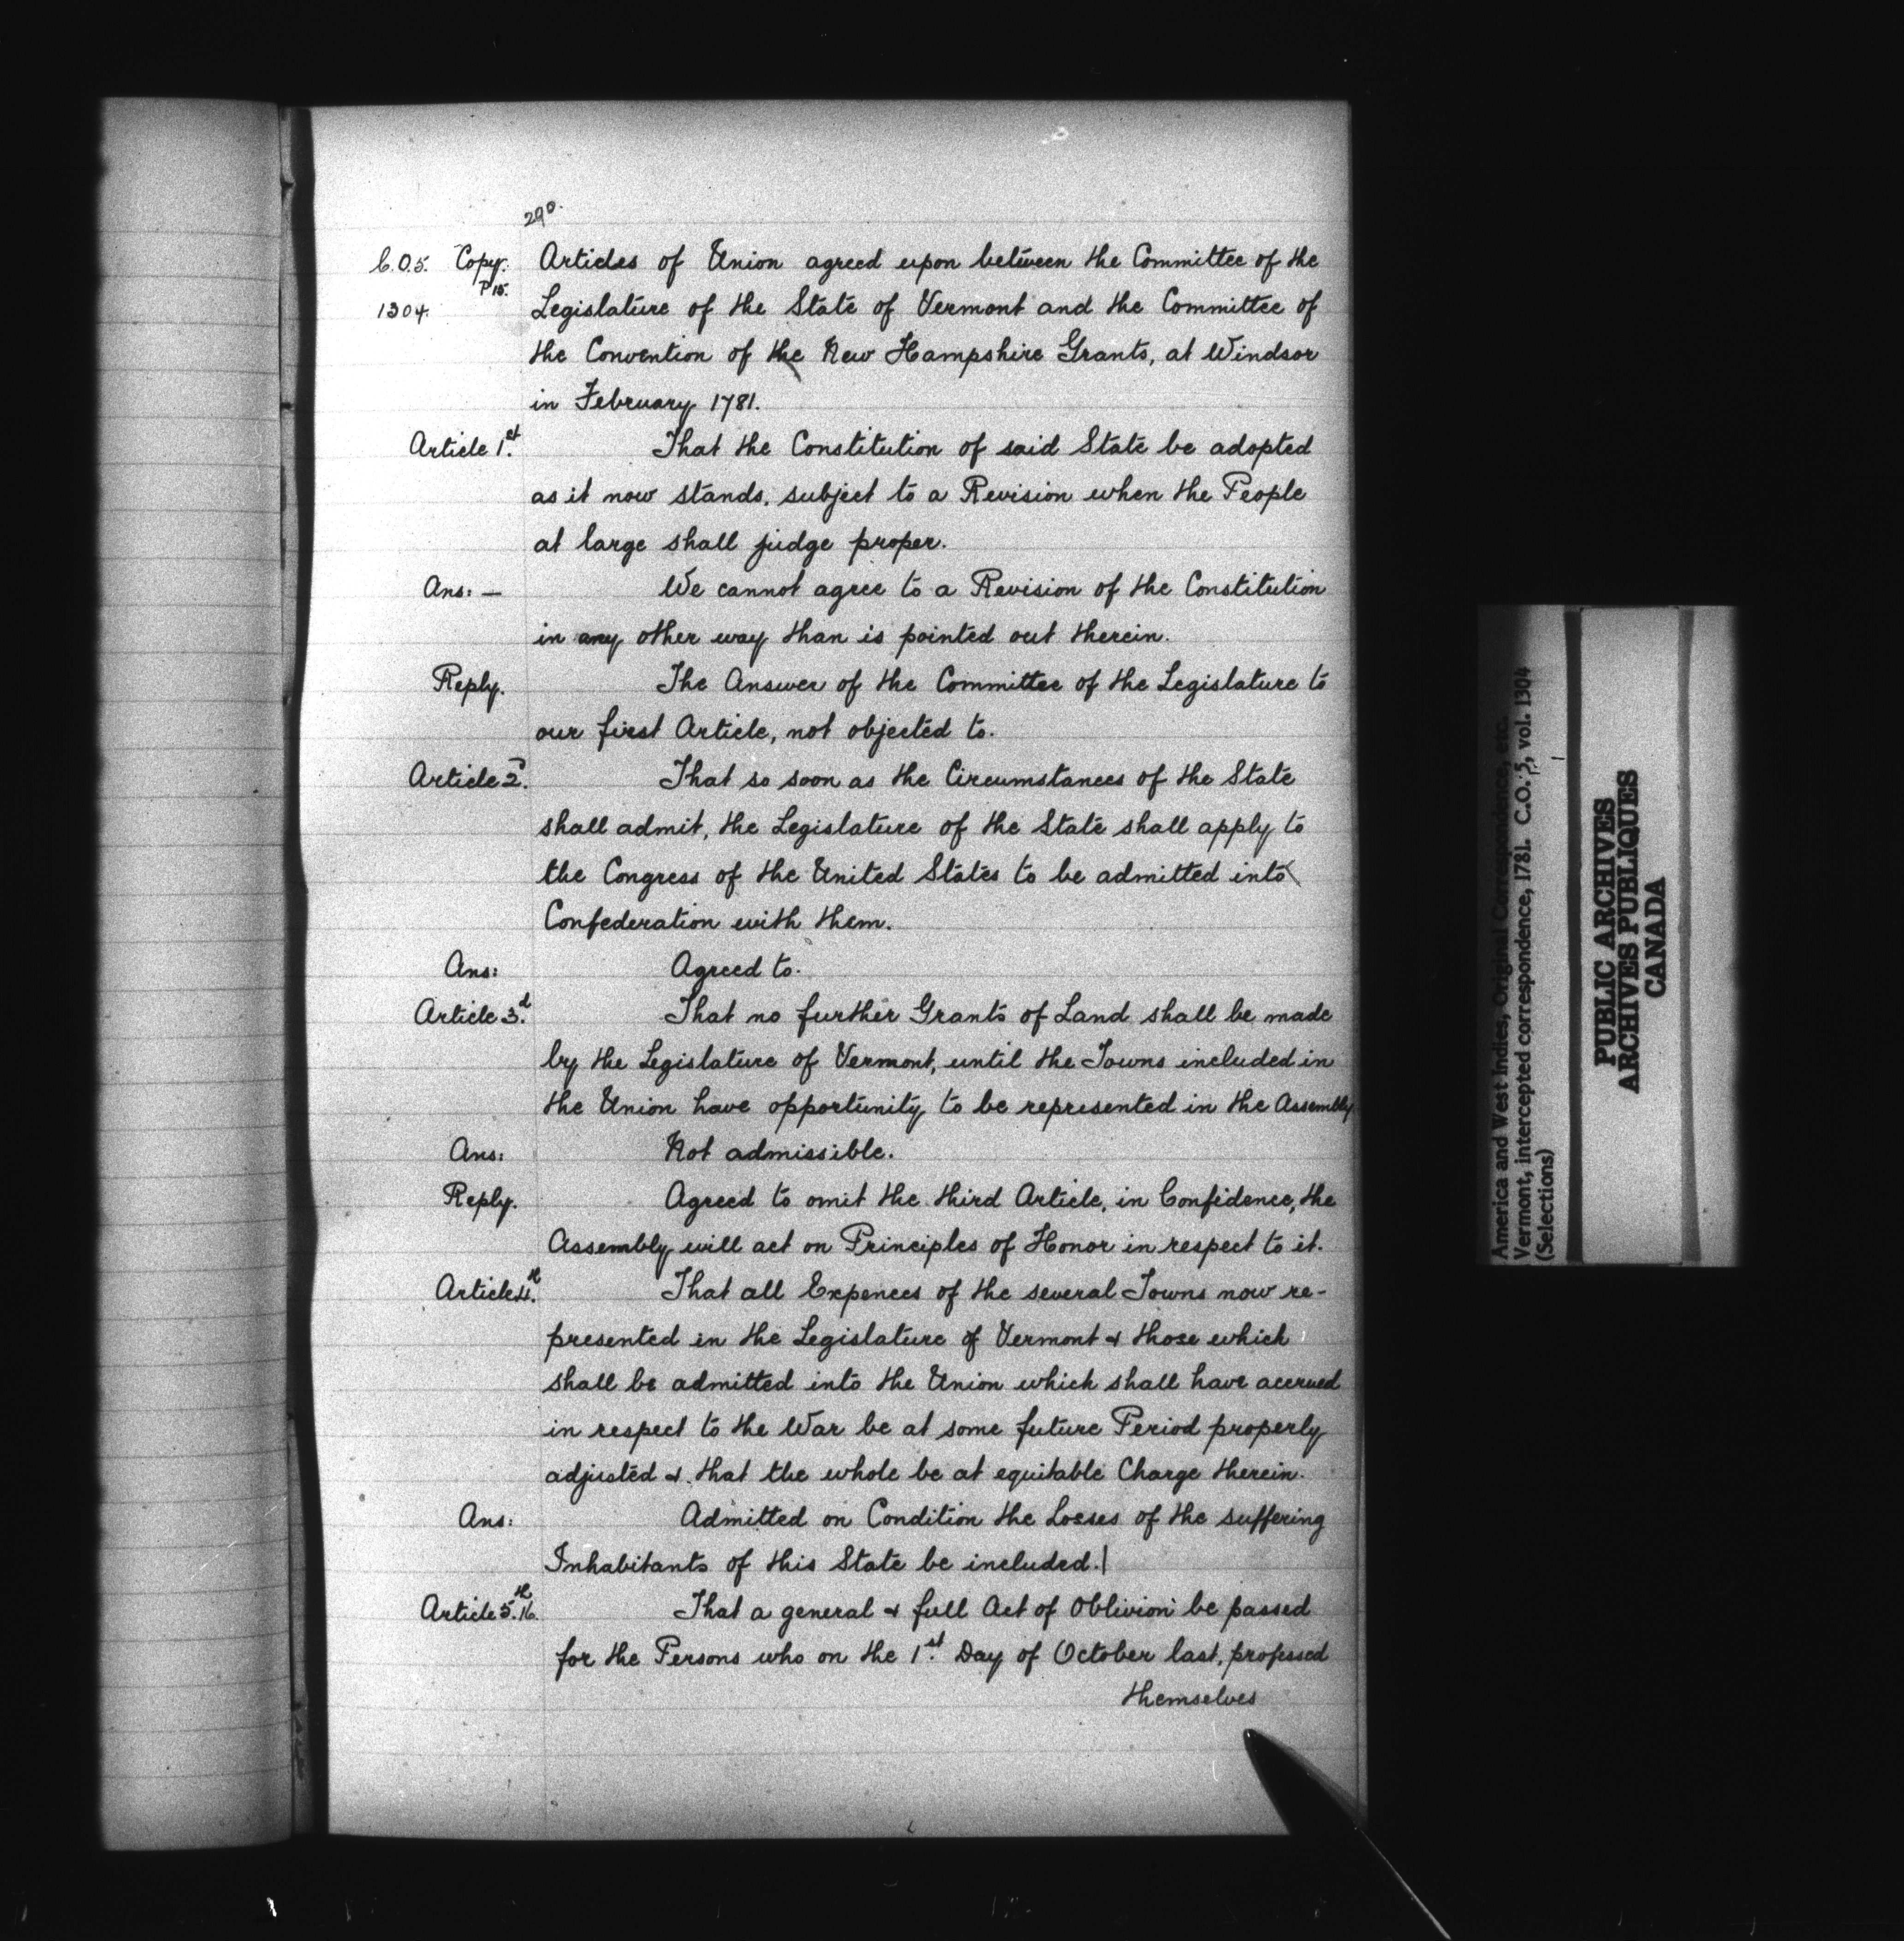 290.
C.O.5. Copy. Articles of Union agreed upon between the Committee of the
P 15.
1304. Legislature of the State of Vermont and the Committee of
the Convention of the New Hampshire Grants, at Windsor
in February 1781.
Article 1st. That the Constitution of said State be adopted
as it now stands, subject to a Revision when the People
at large shall judge proper.
Ans: — We cannot agree to a Revision of the Constitution
in any other way than is pointed out therein.
Reply. The Answer of the Committee of the Legislature to
our first Article, not objected to.
Article 2d. That so soon as the Circumstances of the State
shall admit, the Legislature of the State shall apply to
the Congress of the United States to be admitted into
Confederation with them.
Ans: Agreed to.
Article 3d. That no further Grants of Land shall be made
by the Legislature of Vermont, until the Towns included in
the Union have opportunity to be represented in the Assembly
Ans: Not admissible.
Reply. Agreed to omit the third Article, in Confidence, the
Assembly will act on Principles of Honor in respect to it.
Article 4th. That all Expences of the several Towns now re-
presented in the Legislature of Vermont & those which
shall be admitted into the Union which shall have accrued
in respect to the War be at some future Period properly
adjusted &. that the whole be at equitable Charge therein.
Ans: Admitted on Condition the Losses of the suffering
Inhabitants of this State be included.
Article 5th. 16. That a general & full Act of Oblivion be passed
for the Persons who on the 1st. Day of October last, professed
themselves
America and West Indies, Original Correspondence, etc.
Vermont, intercepted correspondence, 1781. C.O. 5, vol. 1304
(Selections)
PUBLIC ARCHIVES
ARCHIVES PUBLIQUES
CANADA